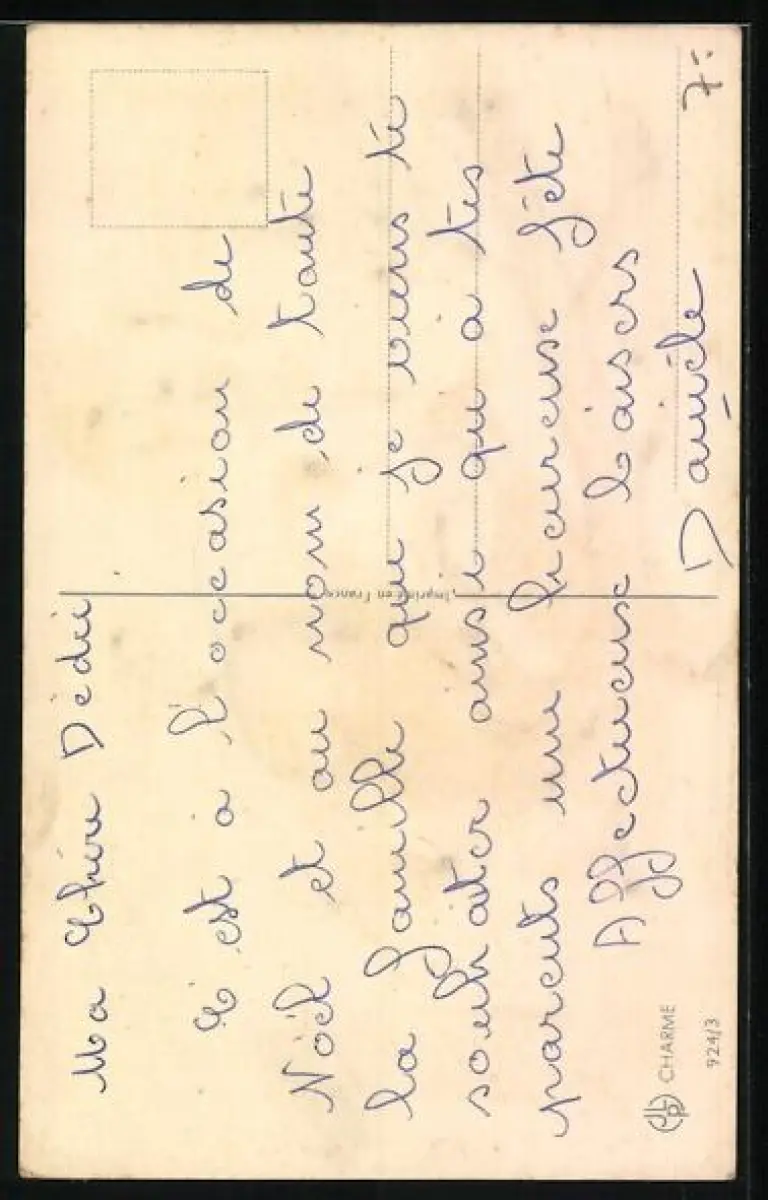 Ma Chère Dédée
C'est à l'occasion de
Noël et au nom de toute
la famille que je viens te
souhaiter ainsi qu'à tes
parents une heureuse fête
Affectueuse baisers
Danièle
Imprimé en France
CHARME
924/3
7-